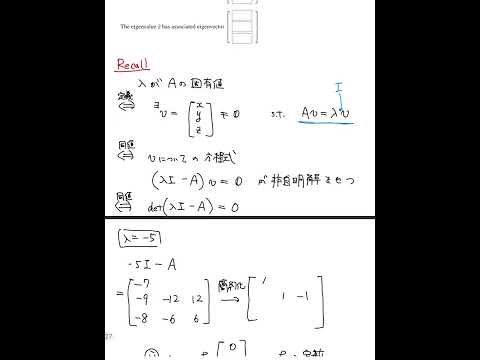 The eigenvalue 2 has associated eigenvector
Recall
λ が A の固有値
定義 ⇔ ∃v = [x y z] ≠ 0 s.t. Av = λv I
同値 ⇔ v についての方程式
(λI − A) v = 0 が非自明解をもつ
同値 ⇔ det(λI − A) = 0
λ = −5
−5I − A
= [−7
−9 −12 12
−8 −6 6] 簡約化 → [1
1 −1]
[0